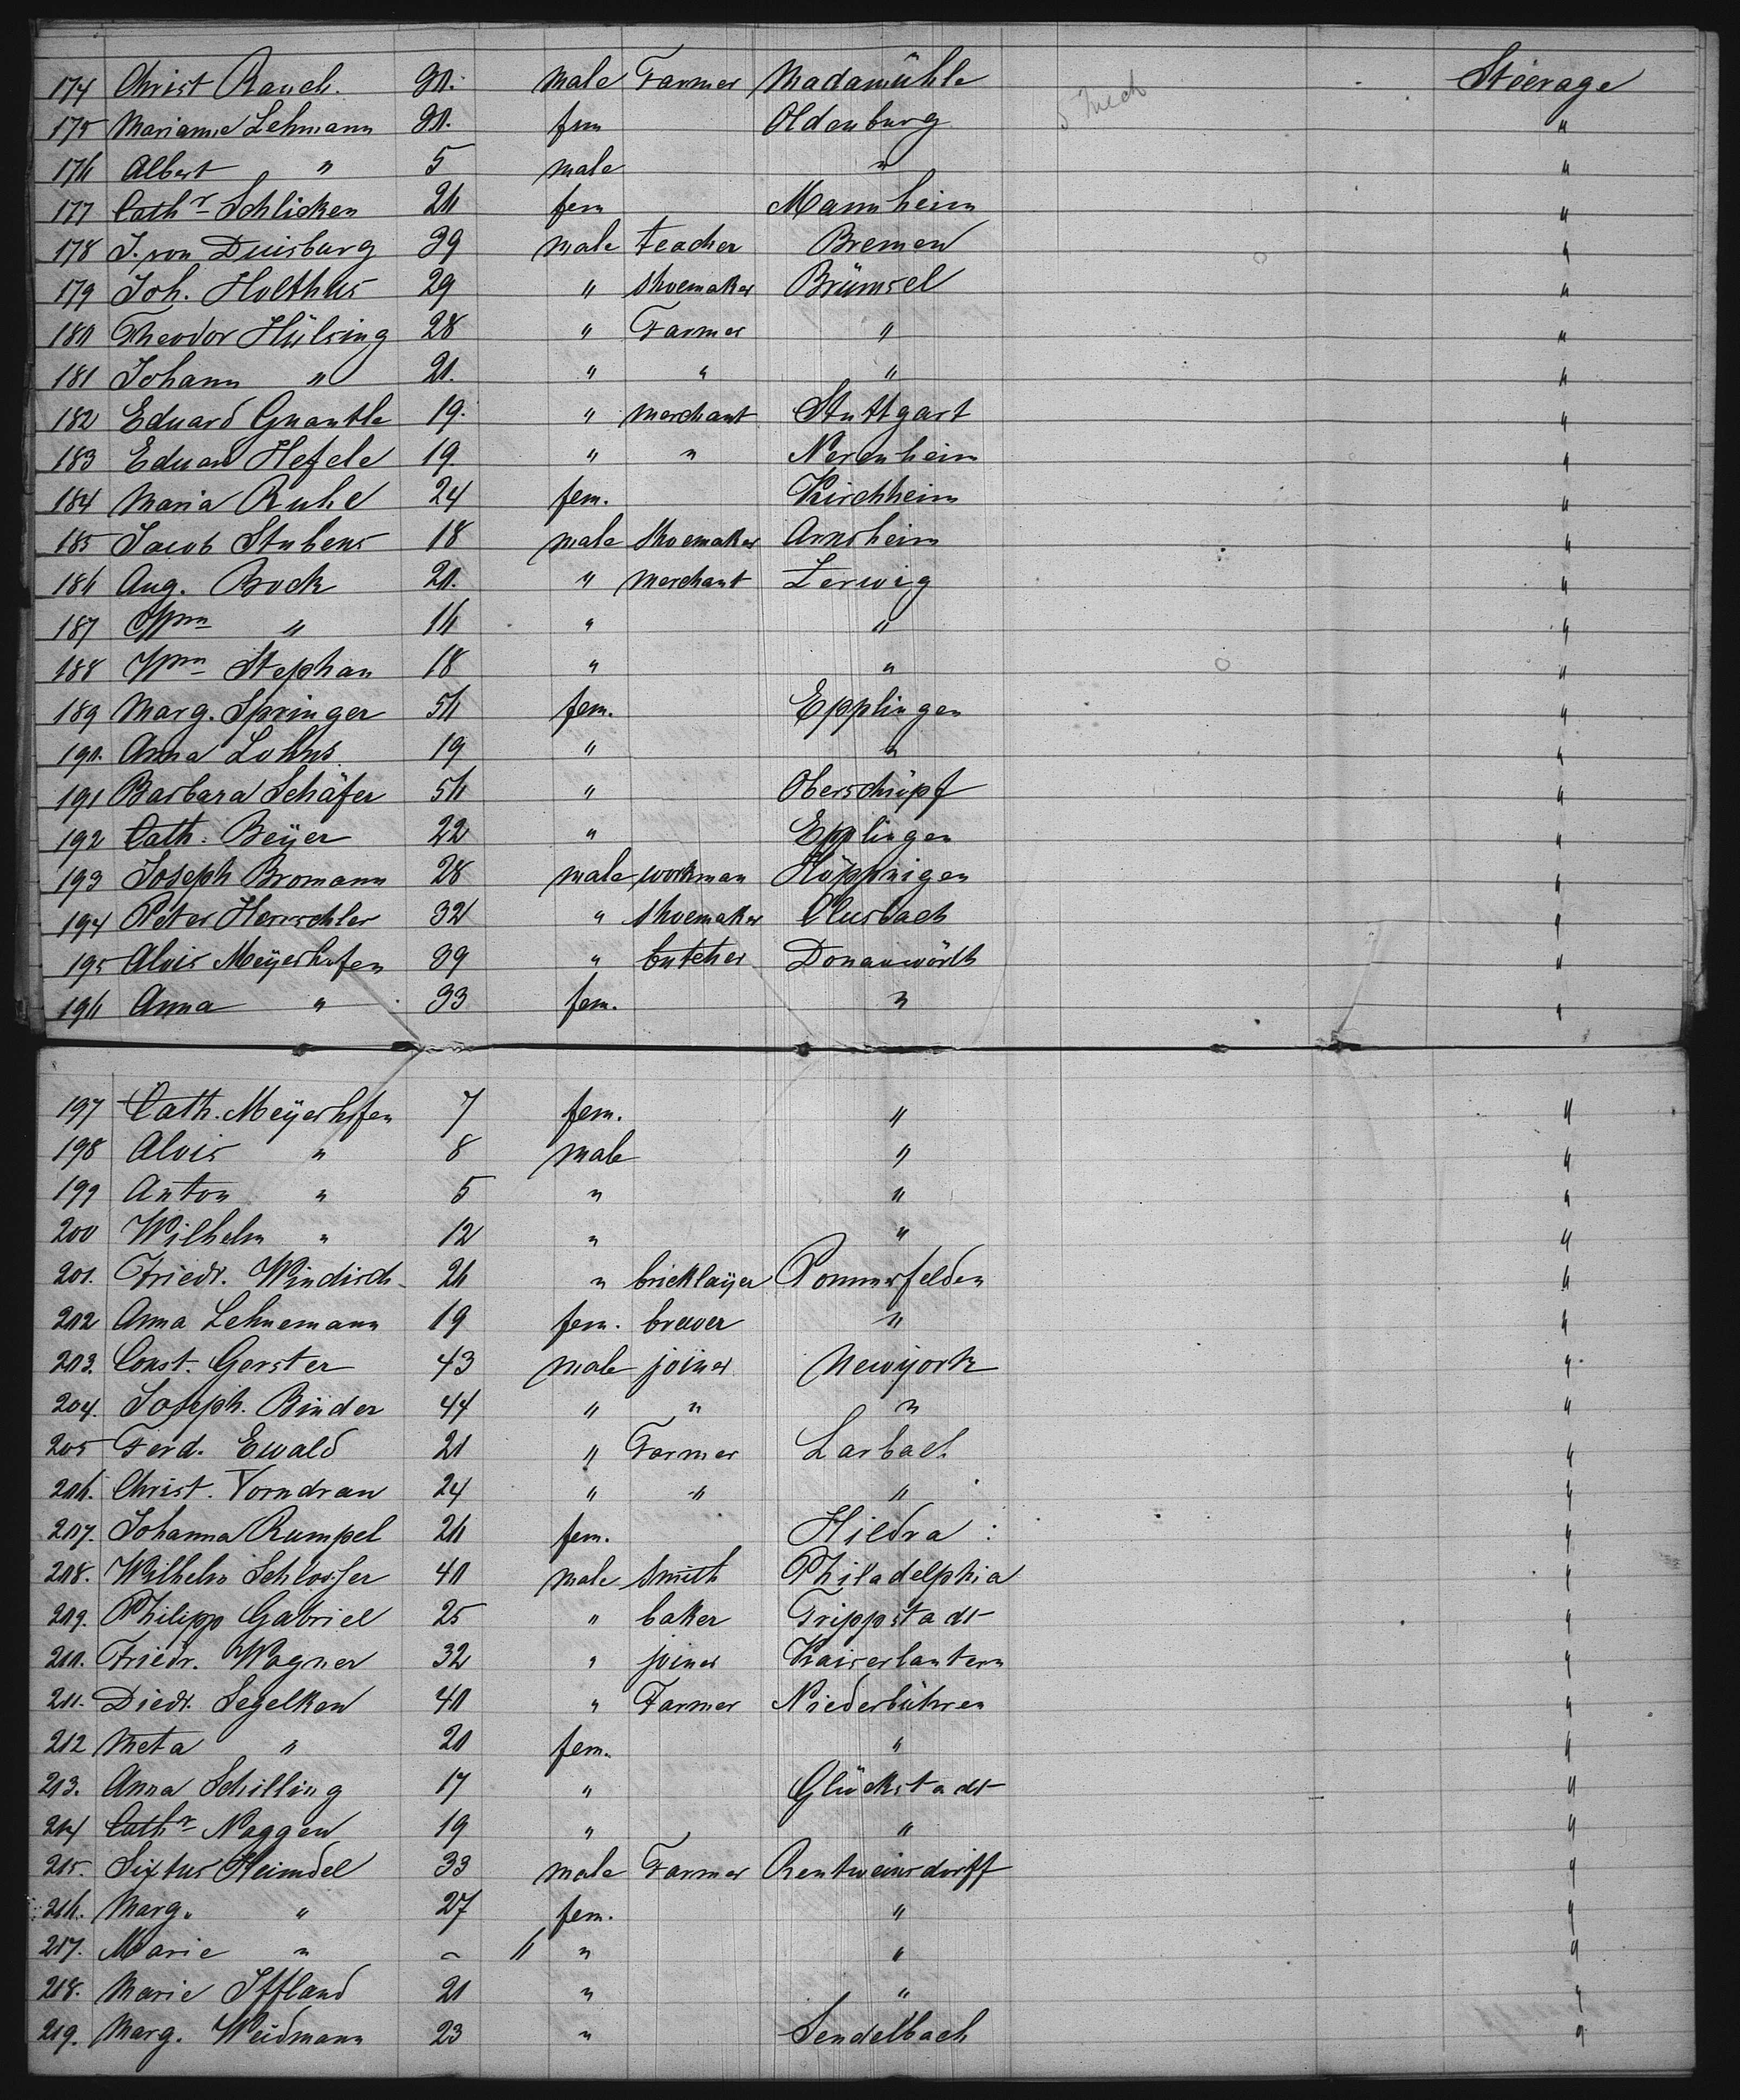 174 Christ Rauch. 30. male Farmer Madamühle Steerage
175 Marianne Lehmann 30. fem Oldenburg "
176 Albert " 5 male " "
177 Cathr Schlicken 26 fem Mannheim "
178 J. von Duisburg 39 male teacher Bremen "
179 Joh. Holthus 29 " shoemaker Brümsel "
180 Theodor Hülsing 28 " Farmer " "
181 Johann " 20. " " " "
182 Eduard Gnantle 19. " merchant Stuttgart "
183 Eduard Hefele 19. " " Nerenheim "
184 Maria Ruhe 24 fem. Kirchheim "
185 Jacob Stubens 18 male shoemaker Arnsheim "
186 Aug. Bock 20. " merchant Lerwig "
187 Hrm " 16 " " "
188 Wm Stephan 18 " " "
189 Marg. Springer 56 fem. Epplingen "
190. Anna Lohns. 19 " " "
191 Barbara Schäfer 56 " Oberschüpf "
192 Cath: Beÿer 22 " Epplingen "
193 Joseph Bromann 28 male workman Höppingen "
194 Peter Herrschler 32 " shoemaker Clusbach "
195 Alois Meÿerhofen 39 " butcher Donauwörth "
196 Anna " 33 fem. " "
197 Cath. Meÿerhofen 7 fem. " "
198 Alois " 8 male " "
199 Anton " 5 " " "
200 Wilhelm " 12 " " "
201. Friedr. Windisch 26 " bricklaÿer Pommersfelden "
202 Anna Lehnemann 19 fem. brewer " "
203. Const. Gerster 43 male joiner Newÿork "
204. Joseph. Binder 44 " " " "
205 Ferd. Ewald 21 " Farmer Larbach "
206. Christ. Vorndran 24 " " " "
207. Johanna Rumpel 26 fem. Hildra : "
208. Wilhelm Schlosser 40 male smith Philadelphia "
209. Philipp Gabriel 25 " baker Trippstadt "
210. Friedr. Wagner 32 " joiner Kaiserlautern "
211. Diedr. Segelken 40 " Farmer Niederbühren "
212 Meta " 20 fem. " "
213. Anna Schilling 17 " Glückstadt "
214 Cathr Naggen 19 " " "
215. Sixtus Heimdel 33 male Farmer Rentweinsdorff "
216. Marg. " 27 fem. " "
217. Marie " ~ 11 " " "
218. Marie Iffland 21 " " "
219. Marg. Weidmann 23 " Sendelbach "